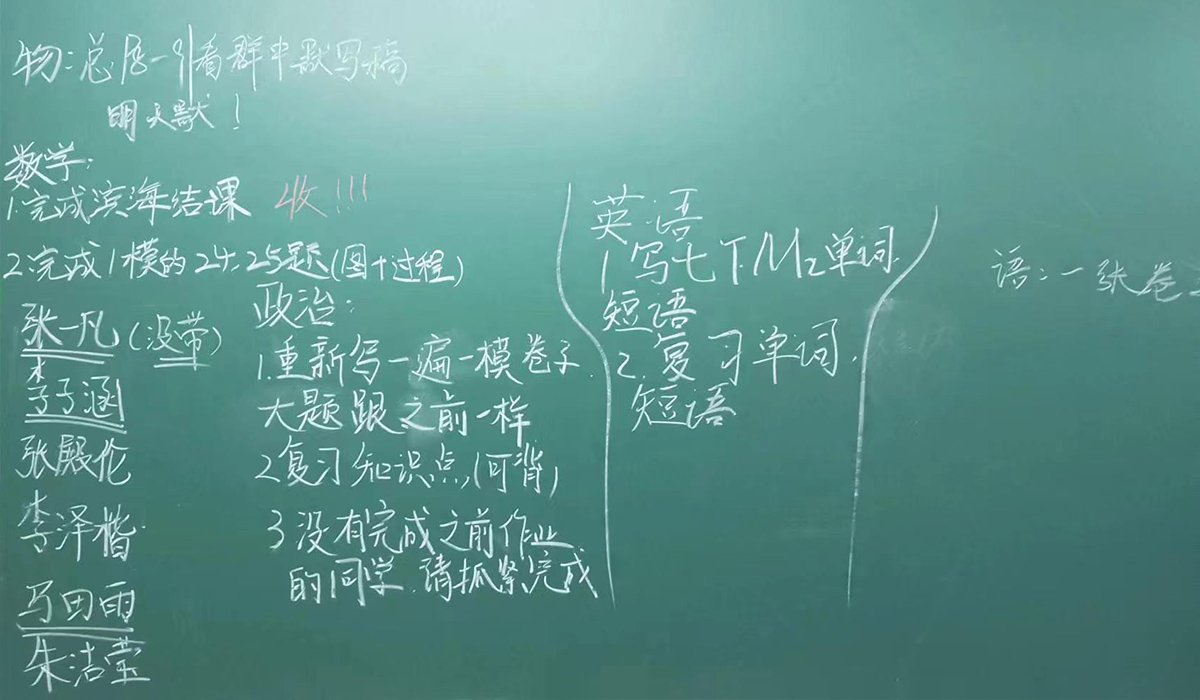 物:总18-9|看群中默写稿
明天默!
数学:
1.完成滨海结课 收!!!
2.完成1模的24.25题(图+过程)
张一凡(没带)
李子涵
张殿伦
李泽楷
马田雨
朱洁莹
政治:
1.重新写一遍一模卷子.
大题跟之前一样
2.复习知识点,(可背)
3没有完成之前作业
的同学.请抓紧完成
英语
1.写七下M2单词.
短语
2.复习单词.
短语
语:一张卷